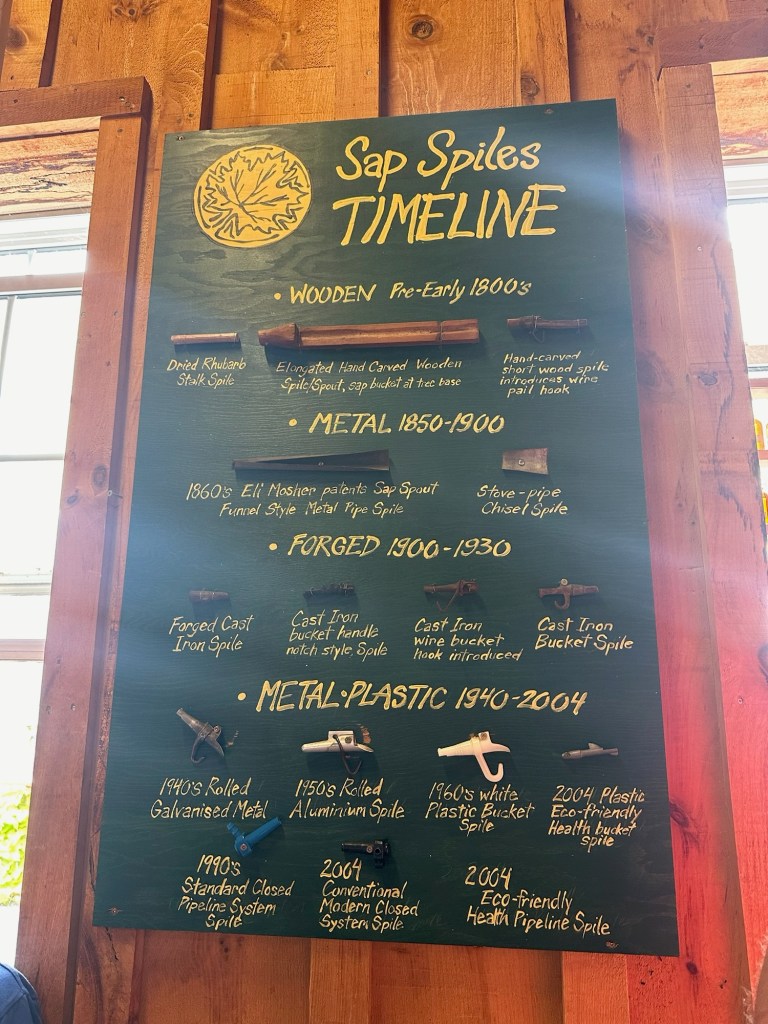 Sap Spiles
TIMELINE
• WOODEN Pre-Early 1800's
Dried Rhubarb
Stalk Spile
Elongated Hand Carved Wooden
Spile/Spout, sap bucket at tree base
Hand-carved
short wood spile
introduces wire
pail hook
• METAL 1850-1900
1860's Eli Mosher patents Sap Spout
Funnel Style Metal Pipe Spile
Stove-pipe
Chisel Spile
• FORGED 1900-1930
Forged Cast
Iron Spile
Cast Iron
bucket handle
notch style, Spile
Cast Iron
wire bucket
hook introduced
Cast Iron
Bucket Spile
• METAL•PLASTIC 1940-2004
1940's Rolled
Galvanised Metal
1950's Rolled
Aluminium Spile
1960's white
Plastic Bucket
Spile
2004 Plastic
Eco-friendly
Health bucket
spile
1990's
Standard Closed
Pipeline System
Spile
2004
Conventional
Modern Closed
System Spile
2004
Eco-friendly
Health Pipeline Spile